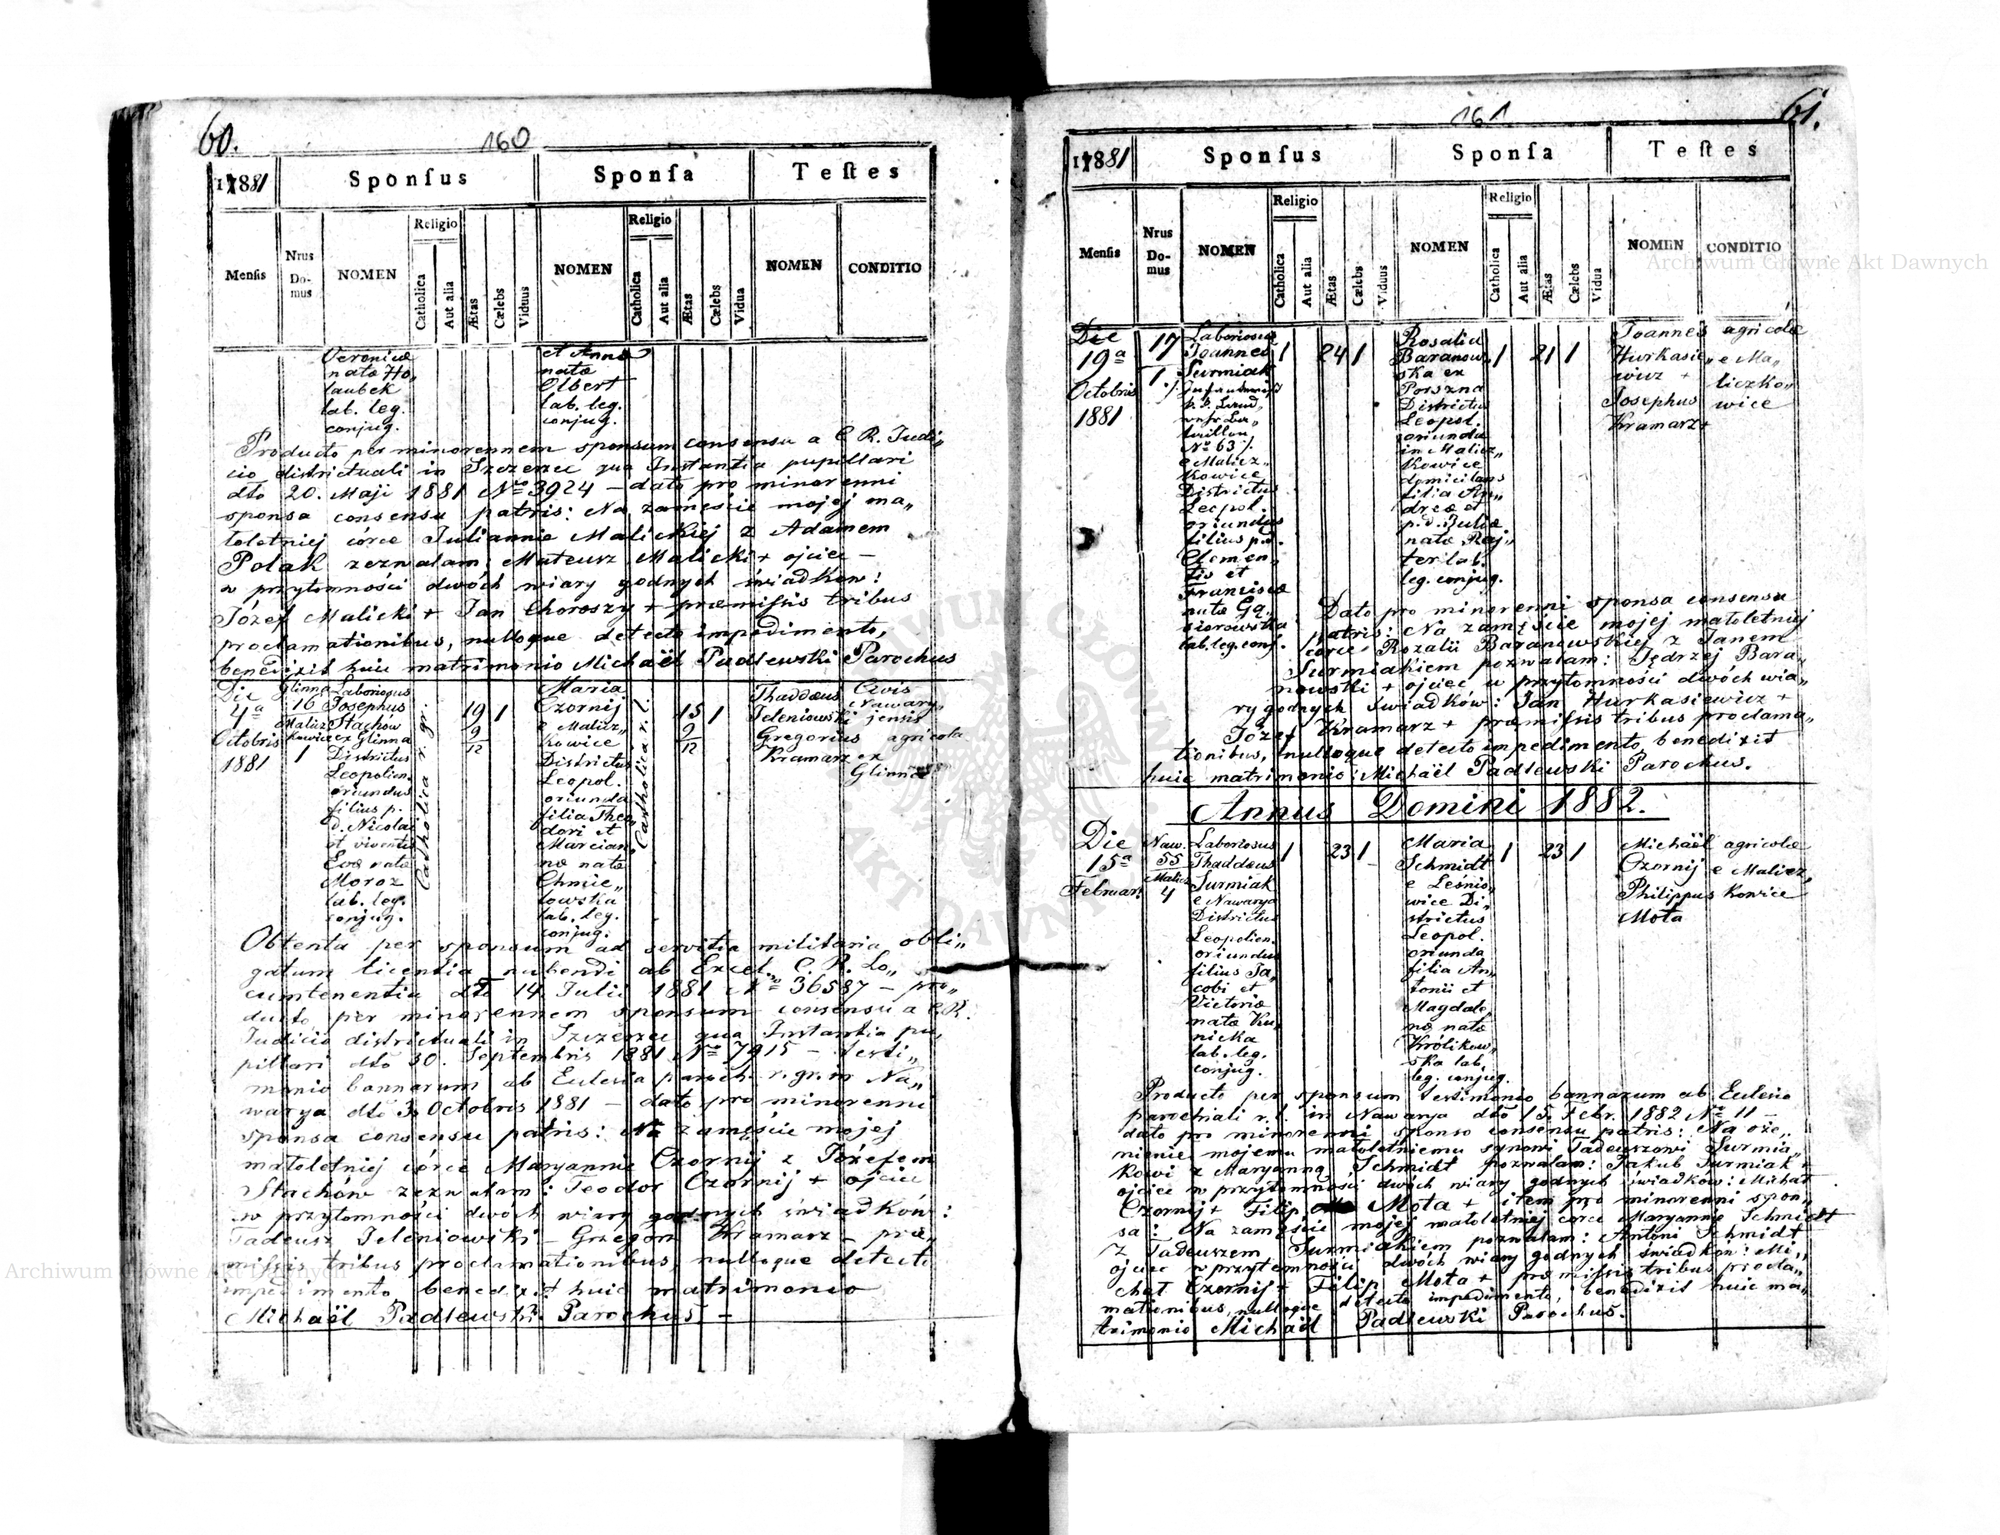 60.
160
1881
Sponſus
Sponſa
Teſtes
Menſis
Nrus Do-mus
NOMEN
Religio
Catholica
Aut alia
Ætas
Cælebs
Viduus
NOMEN
Religio
Catholica
Aut alia
Ætas
Cælebs
Vidua
NOMEN
CONDITIO
Veronicæ
natæ Ho„
laubek
lab. leg.
conjug.
et Annæ
natæ
Olbert
lab. leg.
conjug.
Producto per minorennem sponsum consensu a C. R. Judi„
cio districtuali in Szczerzec qua Instantia pupillari
dto 20. Maji 1881 No 3924 – dato pro minorenni
sponsa consensu patris: Na zamęście mojej ma„
loletniej córce Juliannie Malickiej z Adamem
Polak zezwalam: Mateusz Malicki + ojciec –
w przytomności dwóch wiary godnych świadków:
Józef Malicki + Jan Choroszy + præmissis tribus
proclamationibus, nulloque detecto impedimento,
benedixit huic matrimonio Michaël Padlewski Parochus
Die
4a
Octobris
1881
Glinna
16
Malicz
kowice
1
Laboriosus
Josephus
Stachów
ex Glinna
Districtus
Leopolien.
oriundus
filius p.
d. Nicolai
et viventis
Evæ natæ
Moroz
lab. leg.
conjug.
Catholica r. gr.
19
9
12
1
Maria
Czornij
e Malicz„
kowice
Districtus
Leopol.
oriunda
filia Theo
dori et
Marcian„
næ natæ
Chmie„
lowska
lab. leg.
conjug.
Catholica r. l.
15
9
12
1
Thaddæus
Jeleniowski
Gregorius
Kramarz
Civis
Nawary„
jensis
agricola
ex
Glinna
Obtenta per sponsum ad servitia militaria obli„
gatum licentia nubendi ab Excel. C. R. Lo„
cumtenentia dto 14 Julii 1881 No 36587 – pro„
ducto per minorennem sponsum consensu a C. R.
Judicio districtuali in Szczerzec qua Instantia pu„
pillari dto 30. Septembris 1881 No 7915 – testi„
monio bannorum ab Eclesia paroch. r. gr. in Na„
warya dto 3 Octobris 1881 – dato pro minorenni
sponsa consensu patris: Na zamęście mojej
maloletniej córce Maryannie Czornij z Józefem
Stachów zezwalam: Teodor Czornij + ojciec
w przytomności dwóch wiary godnych świadków:
Tadeusz Jeleniowski – Grzegorz Kramarz – præ„
missis tribus proclamationibus, nulloque detecto
impedimento benedixit huic matrimonio
Michaël Padlewski Parochus –
61.
161
1881
Sponſus
Sponſa
Teſtes
Menſis
Nrus Do-mus
NOMEN
Religio
Catholica
Aut alia
Ætas
Cælebs
Viduus
NOMEN
Religio
Catholica
Aut alia
Ætas
Cælebs
Vidua
NOMEN
CONDITIO
Die
19a
Octobris
1881
17
1.
Laboriosus
Joannes
Surmiak
No 63 /.
e Malicz„
kowice
Districtus
Leopol.
oriundus
filius p.d.
Clemen„
tis et
Franciscæ
natæ Gą„
siorowska
lab. leg. conj.
1
24
1
Rosalia
Baranow„
ska ex
Porszna
Districtus
Leopol.
oriunda
in Malicz„
kowice
domicilans
filia An„
dreæ et
p. d. Juliæ
natæ Raj„
ter lab.
leg. conjug.
1
21
1
Joannes
Hurkasie„
wicz +
Josephus
Kramarz +
agricolæ
e Ma„
liczko„
wice
Dato pro minorenni sponsa consensu
patris: Na zamęście mojej maloletniej
córce Rozalii Baranowskiej z Janem
Surmiakiem pozwalam: Jędrzej Bara„
nowski + ojciec w przytomności dwóch wia„
ry godnych świadków: Jan Hurkasiewicz +
Józef Kramarz + præmissis tribus proclama„
tionibus, nulloque detecto impedimento, benedixit
huic matrimonio: Michaël Padlewski Parochus.
Annus Domini 1882.
Die
15a
Februari
Naw.
55
Malicz
4
Laboriosus
Thaddæus
Surmiak
e Nawarya
Districtus
Leopolien.
oriundus
filius Ja„
cobi et
Victoriæ
natæ Ku„
nicka
lab. leg.
conjug.
1
23
1
Maria
Schmidt
e Leśnio„
wice Di„
strictus
Leopol.
oriunda
filia An„
tonii et
Magdale„
næ natæ
Królikow„
ska lab.
leg. conjug.
1
23
1
Michaël
Czornij
Philippus
Mota
agricolæ
e Malicz„
kowice
Producto per sponsum testimonio bannorum ab Eclesia
parochiali r. l. in Nawarya dto 15. Febr. 1882 No 11 –
dato pro minorenni sponso consensu patris: Na oże„
nienie mojemu maloletniemu synowi Tadeuszowi Surmia„
kowi z Maryanną Schmidt pozwalam: Jakub Surmiak +
ojciec w przytomności dwóch wiary godnych świadków: Michał
Czornij + Filip Mota + item pro minorenni spon„
sa: Na zamęście mojej maloletniej córce Maryannie Schmidt
z Tadeuszem Surmiakiem pozwalam: Antoni Schmidt
ojciec w przytomności dwóch wiary godnych świadków: Mi„
chał Czornij + Filip Mota + præmissis tribus procla„
mationibus, nulloque detecto impedimento, benedixit huic ma„
trimonio Michaël Padlewski Parochus.
Archiwum Główne Akt Dawnych
Archiwum Główne Akt Dawnych
ARCHIWUM GŁÓWNE AKT DAWNYCH